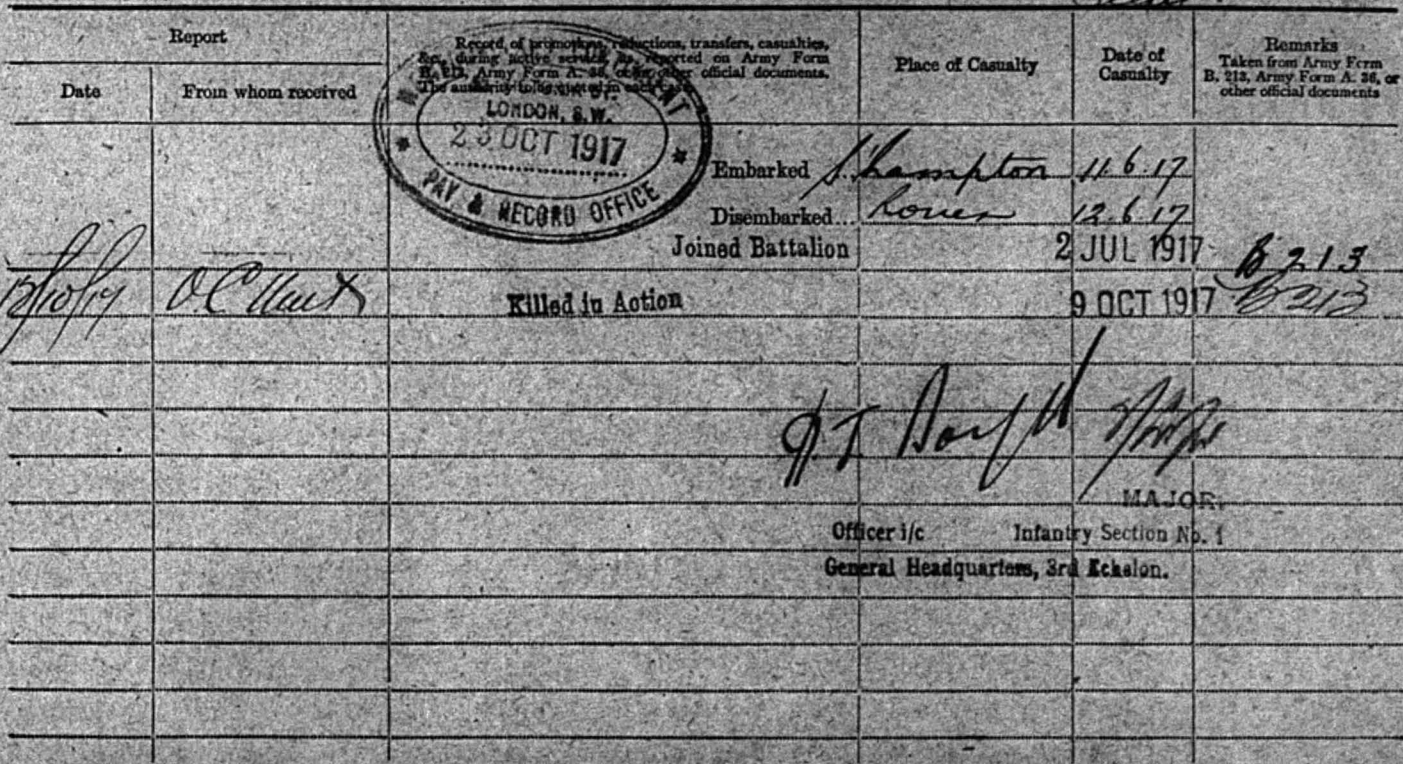 Report
Date
From whom received
Record of promotions, reductions, transfers, casualties,
&c., during active service, as reported on Army Form
B. 213, Army Form A. 36, or in other official documents.
The authority to be quoted in each case.
Place of Casualty
Date of
Casualty
Remarks
Taken from Army Form
B. 213, Army Form A. 36, or
other official documents
LONDON, S.W.
23 OCT 1917
PAY & RECORD OFFICE
Embarked S'hampton 11.6.17
Disembarked... Rouen 12.6.17
Joined Battalion 2 JUL 1917 B 213
12/10/17 O.C. Unit Killed in Action 9 OCT 1917 B213
MAJOR,
Officer i/c Infantry Section No. 1
General Headquarters, 3rd Echelon.